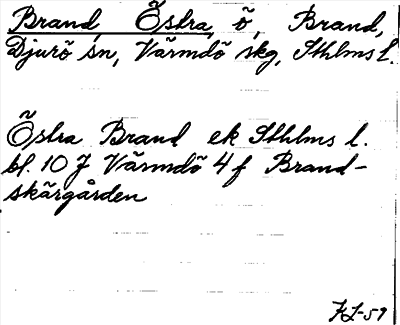 Brand, Östra, ö, Brand,
Djurö sn, Värmdö skg, Sthlms l.
Östra Brand ek Sthlms l.
bl. 10 J Värmdö 4 f Brand-
skärgården
KJ-59